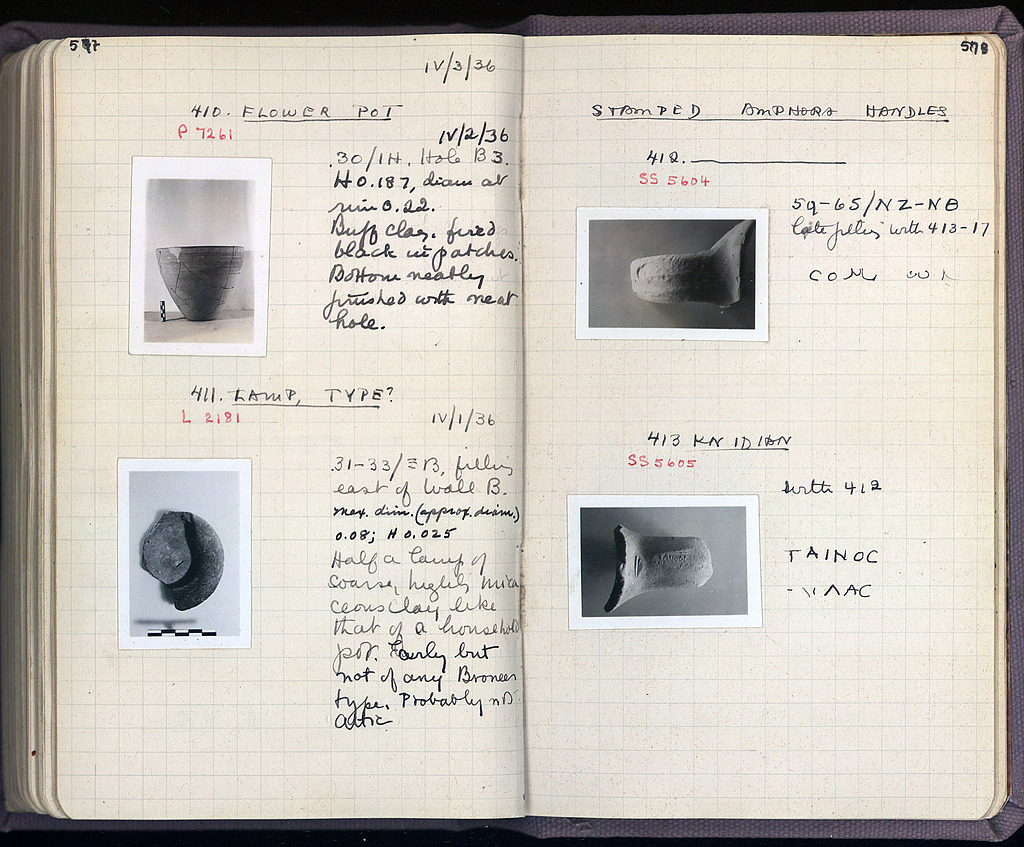 IV/3/36
410. FLOWER POT
P 7261
IV/2/36
.30/IH. Hole B3.
H 0.187, diam at
rim 0.22.
Buff clay. fired
black in patches.
Bottom neatly
finished with neat
hole.
411. LAMP, TYPE?
L 2181
IV/1/36
.31-33/ΞB, filling
east of Wall B.
max. dim. (approx. diam.)
0.08; H 0.025
Half a lamp of
coarse, highly mica
ceous clay like
that of a household
pot. Early but
not of any Broneer
type. Probably not
Attic
578
STAMPED AMPHORA HANDLES
412.
SS 5604
59-65/NZ-NΘ
late filling with 413-17
COM
413 KNIDIAN
SS 5605
with 412
TAINOC
ΛAC